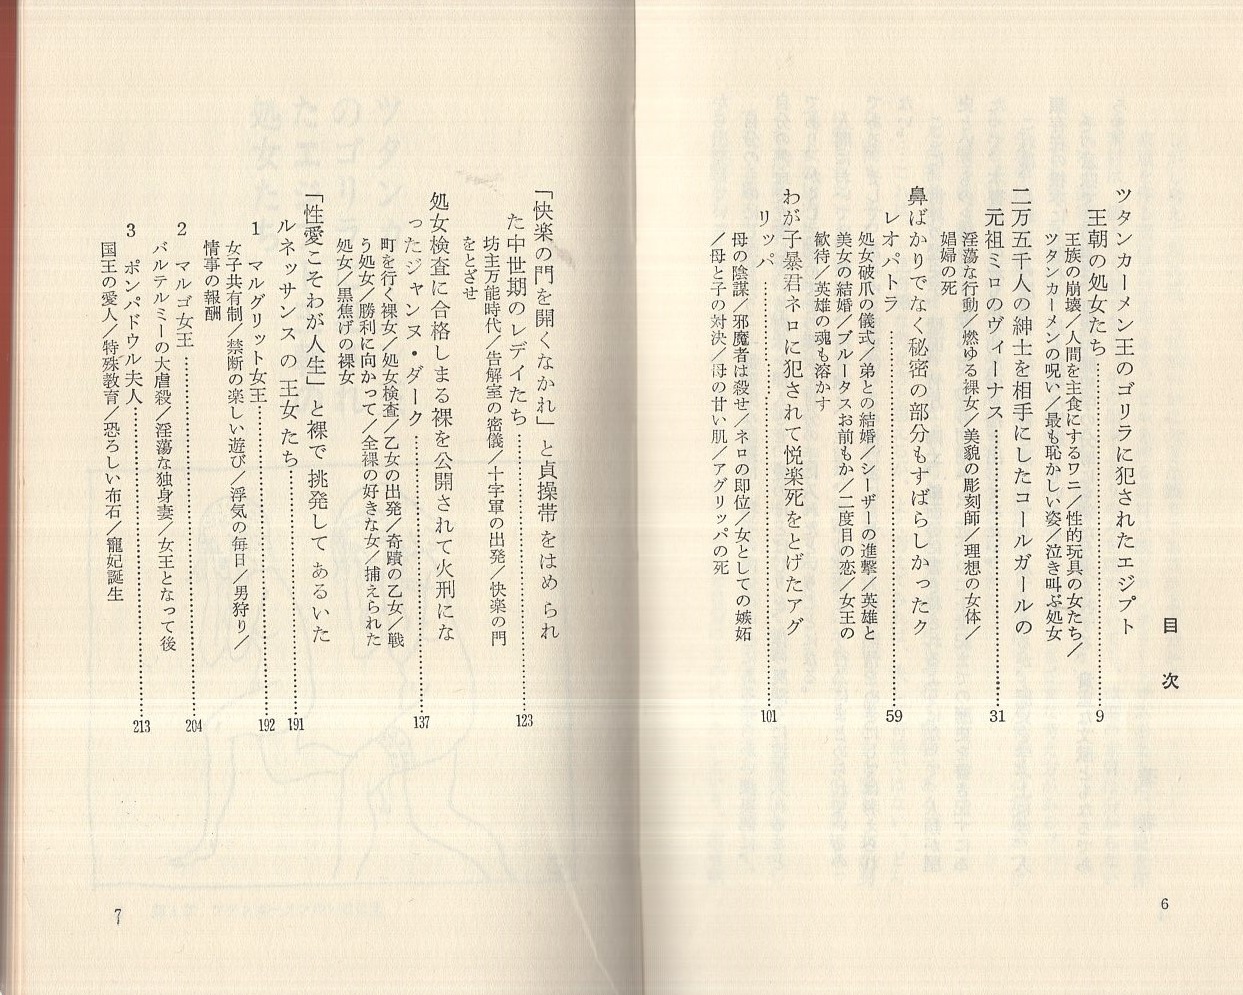 目次
ツタンカーメン王のゴリラに犯されたエジプト
王朝の処女たち……………9
王族の崩壊／人間を主食にするワニ／性的玩具の女たち／
ツタンカーメンの呪い／最も恥かしい姿／泣き叫ぶ処女
二万五千人の紳士を相手にしたコールガールの
元祖ミロのヴィーナス……………31
淫蕩な行動／燃ゆる裸女／美貌の彫刻師／理想の女体／
娼婦の死
鼻ばかりでなく秘密の部分もすばらしかったク
レオパトラ……………59
処女破爪の儀式／弟との結婚／シーザーの進撃／英雄と
美女の結婚／ブルータスお前もか／二度目の恋／女王の
歓待／英雄の魂も溶かす
わが子暴君ネロに犯されて悦楽死をとげたアグ
リッパ……………101
母の陰謀／邪魔者は殺せ／ネロの即位／女としての嫉妬
／母と子の対決／母の甘い肌／アグリッパの死
6
「快楽の門を開くなかれ」と貞操帯をはめられ
た中世期のレデイたち……………123
坊主万能時代／告解室の密儀／十字軍の出発／快楽の門
をとざせ
処女検査に合格しまる裸を公開されて火刑にな
ったジャンヌ・ダーク……………137
町を行く裸女／処女検査／乙女の出発／奇蹟の乙女／戦
う処女／勝利に向かって／全裸の好きな女／捕えられた
処女／黒焦げの裸女
「性愛こそわが人生」と裸で挑発してあるいた
ルネッサンスの王女たち……………191
1 マルグリット女王……………192
女子共有制／禁断の楽しい遊び／浮気の毎日／男狩り／
情事の報酬
2 マルゴ女王……………204
バルテルミーの大虐殺／淫蕩な独身妻／女王となって後
3 ポンパドウル夫人……………213
国王の愛人／特殊教育／恐ろしい布石／寵妃誕生
7